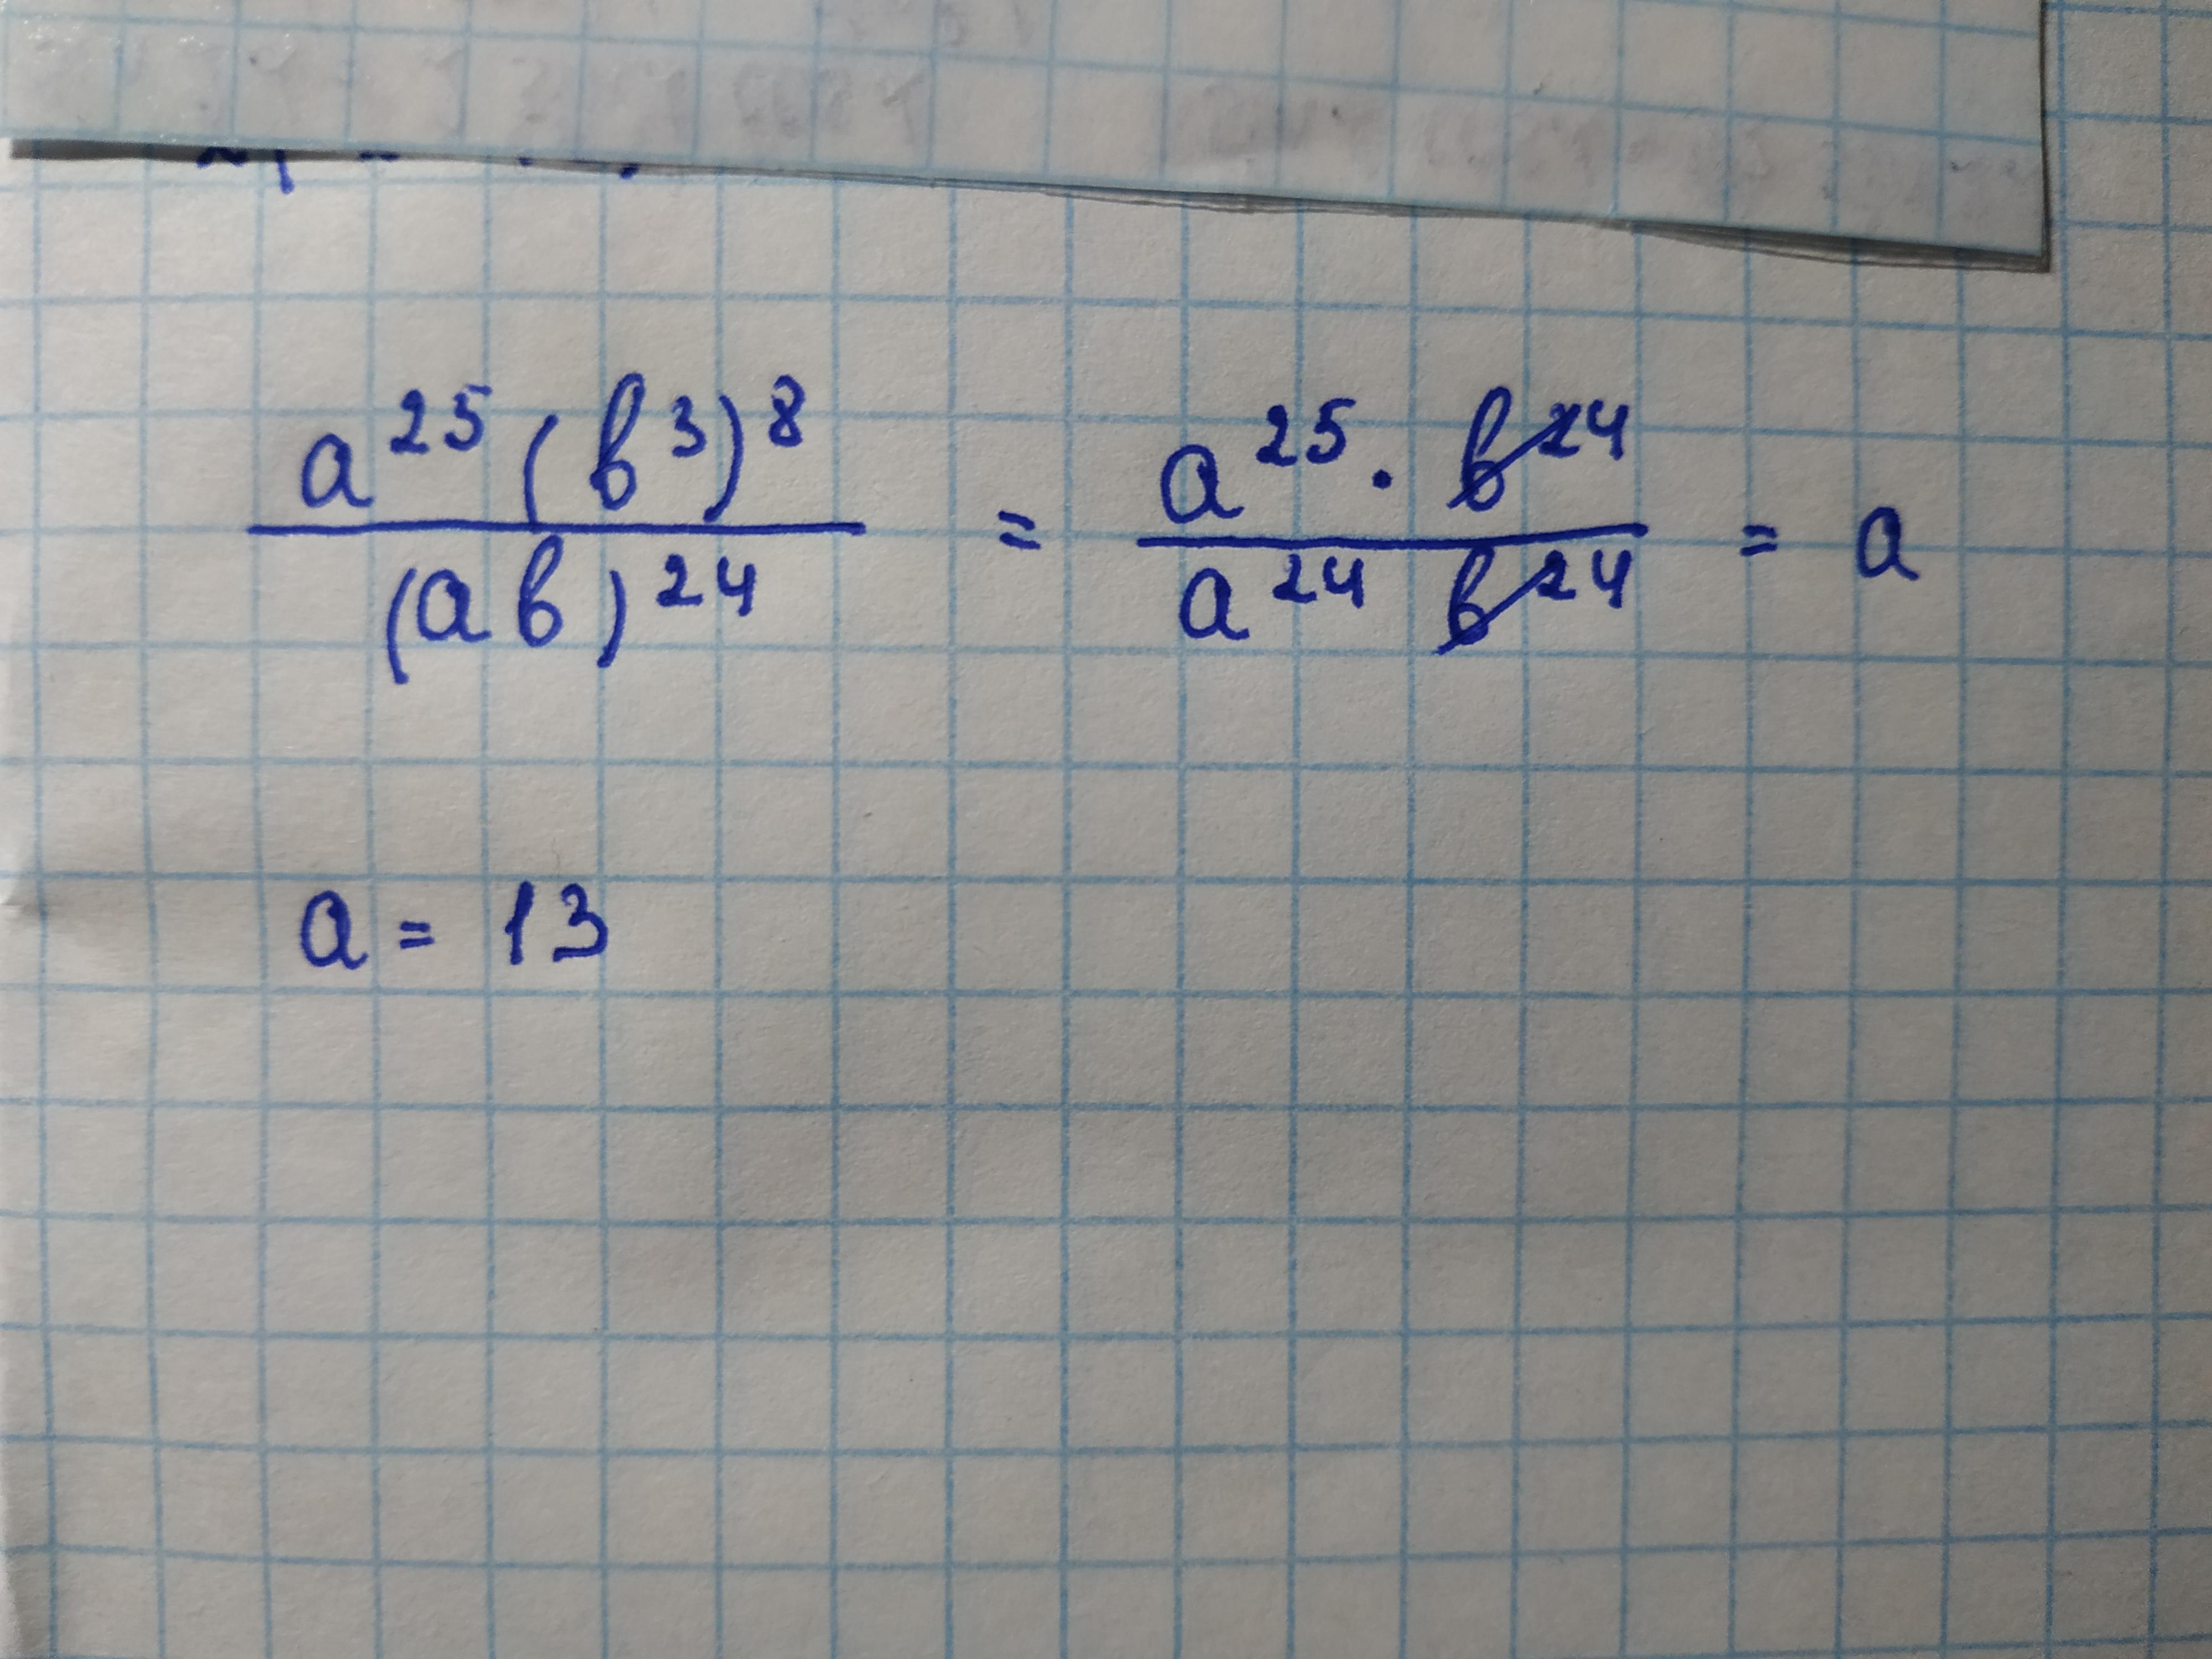 a²⁵(b³)⁸ / (ab)²⁴ = a²⁵ · b²⁴ / a²⁴ b²⁴ = a
a = 13